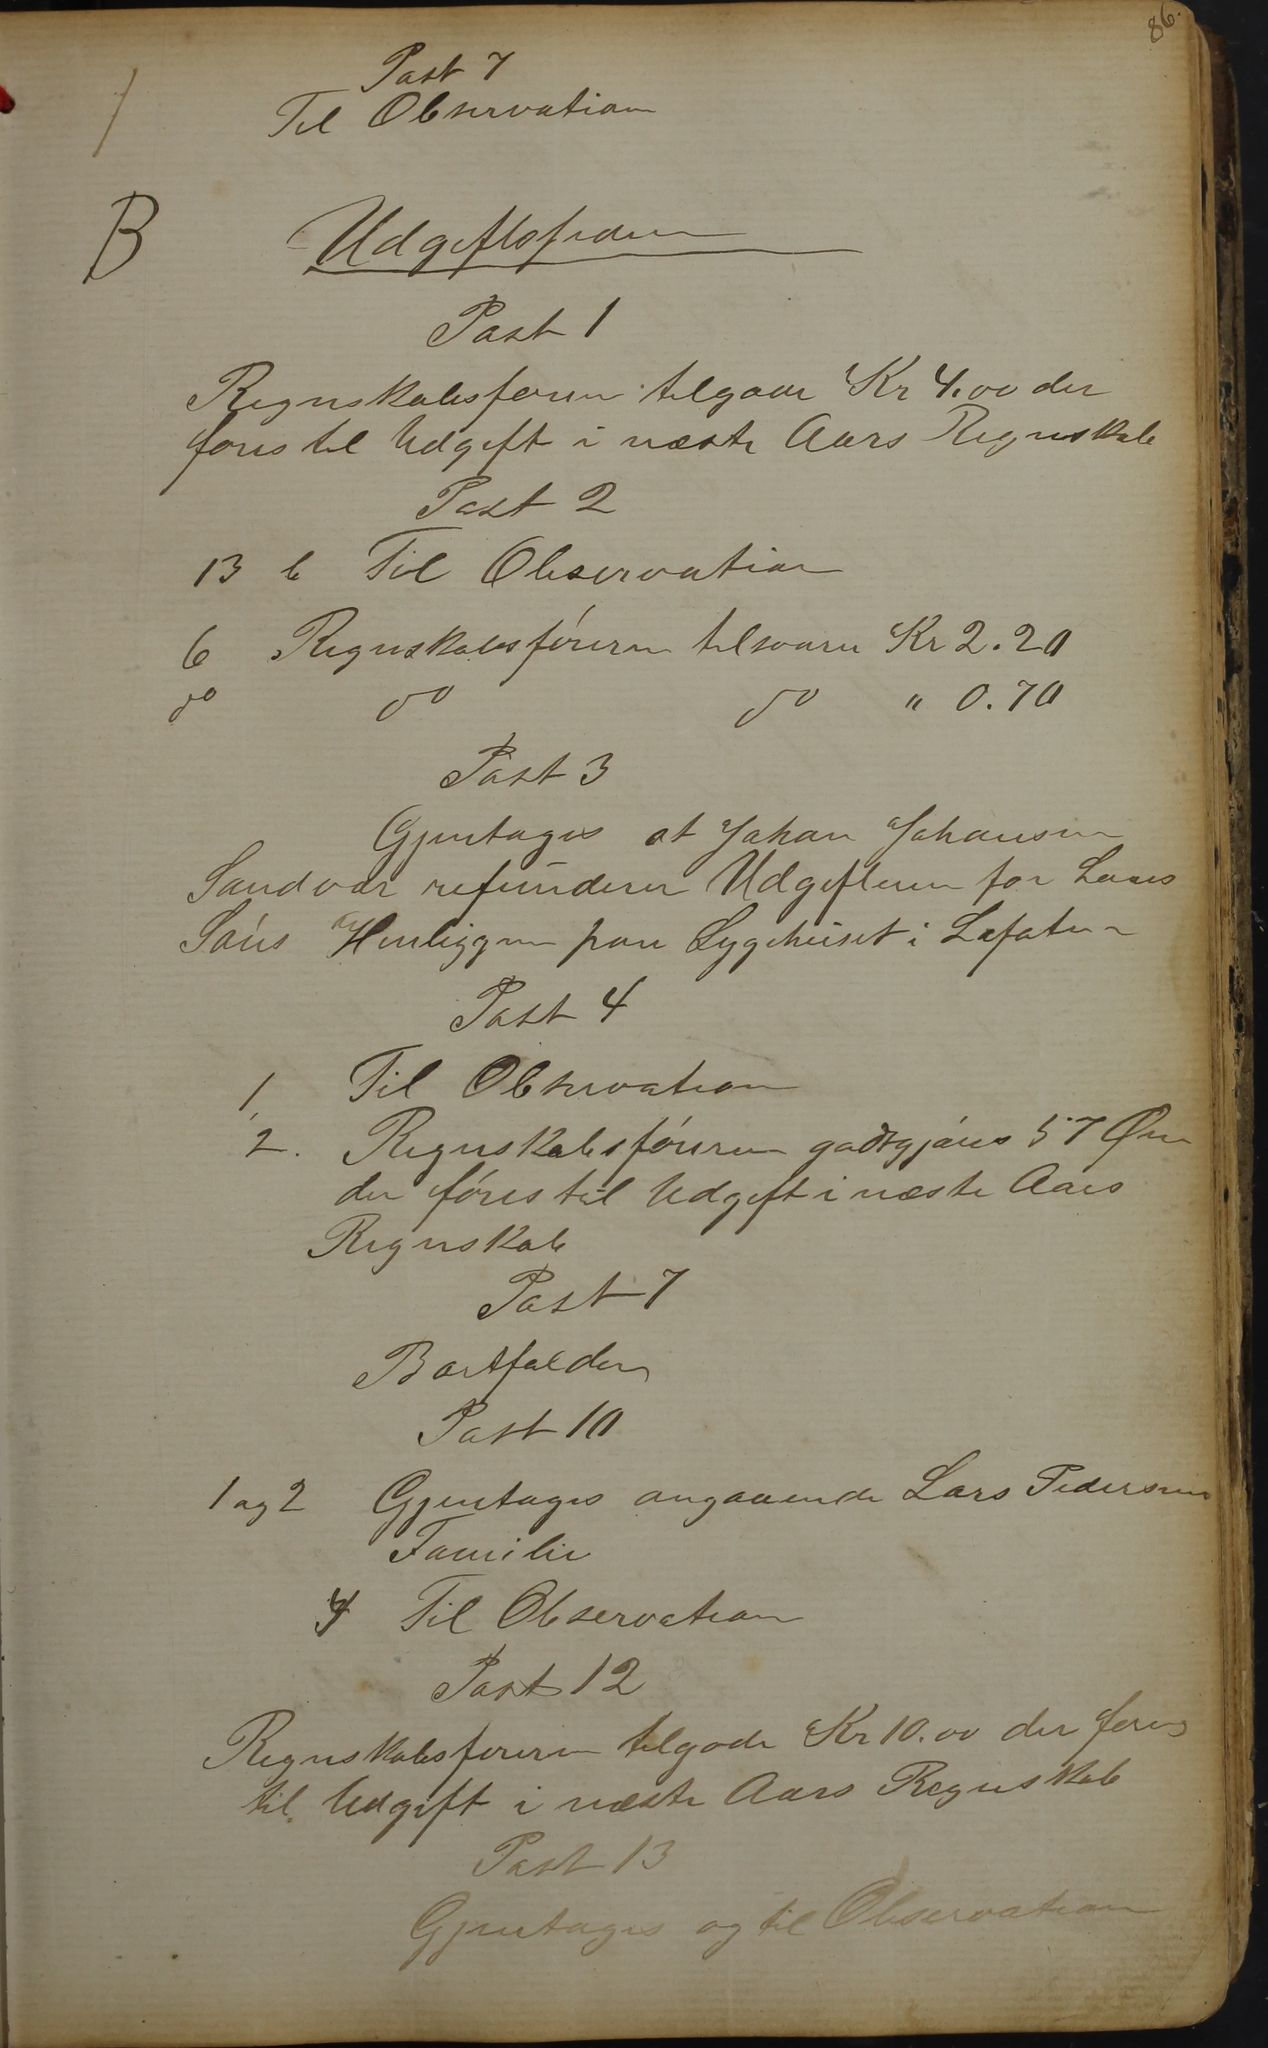 86.
Post 7
1 Til Observation
B Udgiftssiden
Post 1
Regnskabsføreren tilgode Kr 4.00 der
føres til Udgift i næste Aars Regnskab
Post 2
13 b Til Observation
6 Regnskabsføreren tilsvarer Kr 2.20
do do do " 0.70
Post 3
Gjentages at Johan Johansen
Sandvær refunderer Udgifterne for Lars
Henliggen paa Sygehuset i Lofoten
Post 4
1, Til Observation
2. Regnskabsføreren godtgjøres 57 Øre
der føres til Udgift i næste Aars
Regnskab
Post 7
Bortfalder
Post 10
1 og 2 Gjentages angaaende Lars Pedersens
Familie
4 Til Observation
Post 12
Regnskabsføreren tilgode Kr 10.00 der føres
til Udgift i næste Aars Regnskab
Post 13
Gjentages og til Observation